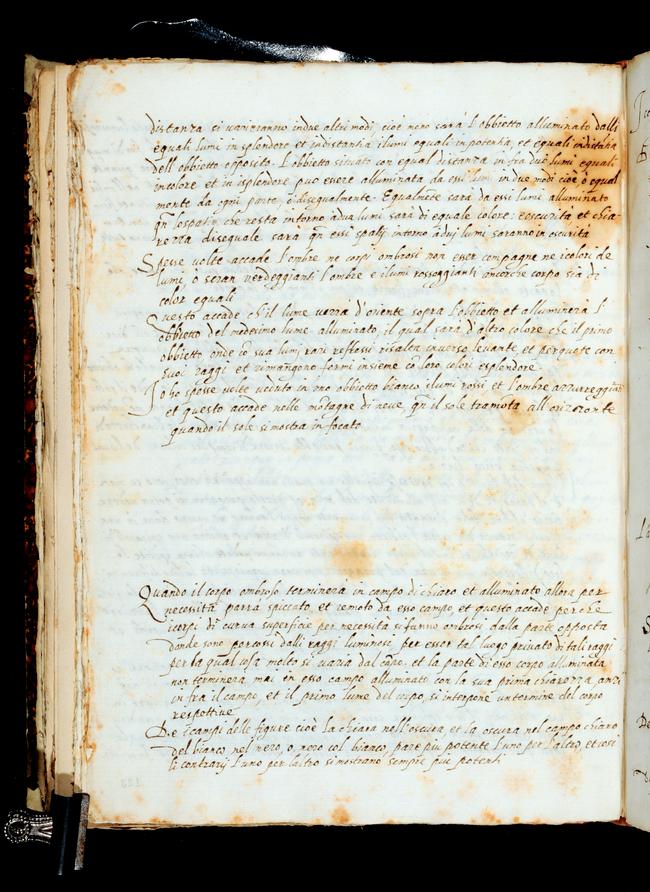 distanza si varieranno indue altri modi, cioè meno sarà l'obbietto alluminato dalli
equali lumi in splendore et indistantia ilumi equali in potentia, et equali indistātia
dell obbietto opposita. L'obbietto situato con equal distanza in fra due lumi equali
incolore et in isplendore puo essere alluminata da essi lumi in due modi cioè ò equal
mente da ogni parte, ò disequalmente. Equalmēte sarà da essi lumi alluminato
qn̄ lo spatio che resta intorno à due lumi sarà di equale colore: e oscurità et chia-
rezza disequale sarà qn̄ essi spatij intorno à duj lumi saranno in oscurità
Spesse volte accade l'ombre ne corpi ombrosi non esser compagne ne icolori de
lume, ò seran verdeggianti l'ombre e ilumi rosseggianti ancorche corpo sia di
color equali
Questo accade ch'il lume verrà d'oriente sopra l'obbietto et alluminerà l'
obbietto del medesimo lume alluminato, il qual sarà d'altro colore che il primo
obbietto onde cō sua lumj rari reflessi risalta inverso levante et percuote con
suoi raggi et rimangono fermi insieme cō loro colori esplendore
Io ho spesse volte veduto in uno obbietto bianco ilumi rossi et l'ombre azzurreggiāti
et questo accade nelle mōtagne di neve, qn̄ il sole tramota all'orizzonte
quando il sole si mostra infocato
Quando il corpo ombroso terminera in campo di chiaro et alluminato allora per
necessità parrà spiccato, et remoto da esso campo, et questo accade perche
icorpi di curva superficie per necessita si fanno ombrosi dalla parte opposta
donde sono percossi dalli raggi luminosi, per esser tal luogo privato di tali raggi
per la qual cosa molto si varia dal cāpo. et la parte di esso corpo alluminata
non terminera mai in esso campo alluminato con la sua prima chiarezza, anzi
in fra il campo, et il primo lume del corpo, si interpone un termine del corpo
respettive
De i campi delle figure cioè la chiara nell'oscura, et la oscura nel campo chiaro
del bianco nel nero, o, nero col bianco, pare piu potente l'uno per l'altro, et cosi
li contrarij l'uno per l'altro si mostrano sempre piu potenti